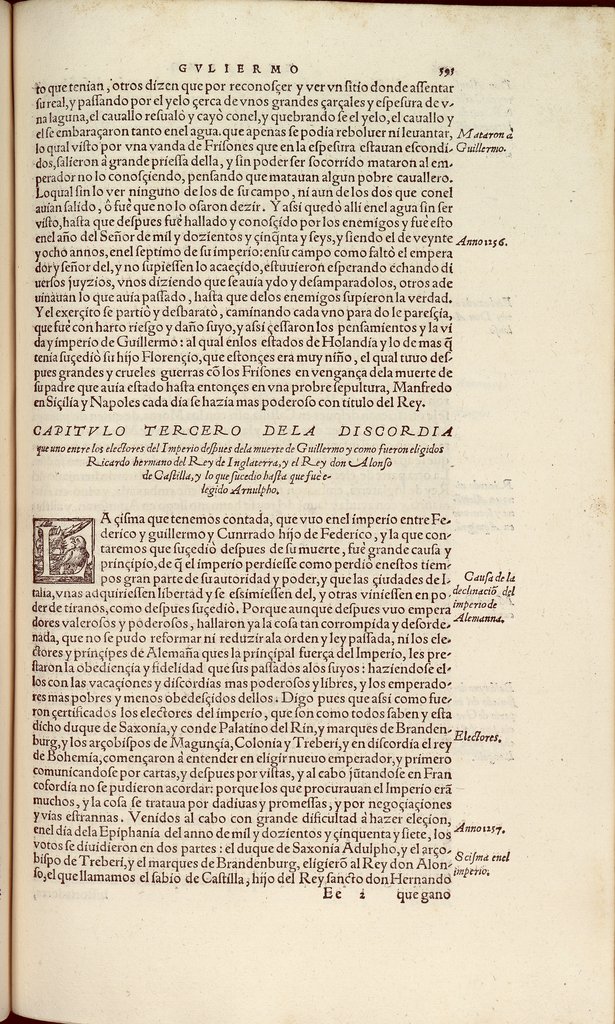 GVLIERMO 593
to que tenian, otros dizen que por reconosçer y ver vn sitio donde assentar
su real, y passando por el yelo çerca de vnos grandes çarçales y espesura de v-
na laguna, el cauallo resualó y cayò conel, y quebrando se el yelo, el cauallo y
el se embaraçaron tanto enel agua. que apenas se podia reboluer ni leuantar,
Mataron à
lo qual visto por vna vanda de Frisones que en la espesura estauan escondi-
Guillermo.
dos, salieron à grande priessa della, y sin poder ser socorrido mataron al em-
perador no lo conosçiendo, pensando que matauan algun pobre cauallero.
Loqual sin lo ver ninguno de los de su campo, ni aun de los dos que conel
auian salido, ô fuè que no lo osaron dezir. Y assi quedò alli enel agua sin ser
visto, hasta que despues fuè hallado y conosçido por los enemigos y fuè esto
enel año del Señor de mil y dozientos y çinq̃nta y seys, y siendo el de veynte
Anno 1256.
y ocho annos, enel septimo de su imperio: en su campo como faltò el empera
dor y señor del, y no supiessen lo acaeçido, estuuieron esperando echando di
uersos juyzios, vnos diziendo que se auia ydo y desamparadolos, otros ade
uinauan lo que auia passado, hasta que delos enemigos supieron la verdad.
Y el exerçito se partiò y desbaratò, caminando cada vno para do le paresçia,
que fuè con harto riesgo y daño suyo, y assi çessaron los pensamientos y la vi
da y imperio de Guillermo: al qual enlos estados de Holandia y lo de mas q̃
tenia suçediò su hijo Florençio, que estonçes era muy niño, el qual tuuo des-
pues grandes y crueles guerras cõ los Frisones en vengança dela muerte de
su padre que auia estado hasta entonçes en vna probre sepultura, Manfredo
en Siçilia y Napoles cada dia se hazia mas poderoso con titulo del Rey.
CAPITVLO TERCERO DELA DISCORDIA
que uno entre los electores del Imperio despues dela muerte de Guillermo y como fueron eligidos
Ricardo hermano del Rey de Inglaterra, y el Rey don Alonso
de Castilla, y lo que sucedio hasta que fuè e-
legido Arnulpho.
LA çisma que tenemos contada, que vuo enel imperio entre Fe-
derico y guillermo y Cunrrado hijo de Federico, y la que con-
taremos que suçediò despues de su muerte, fuè grande causa y
prinçipio, de q̃ el imperio perdiesse como perdio enestos tiem-
pos gran parte de su autoridad y poder, y que las çiudades de I-
Causa de la
talia, vnas adquiriessen libertad y se essimiessen del, y otras viniessen en po-
declinaciõ del
der de tiranos, como despues suçediò. Porque aunque despues vuo empera
imperio de
dores valerosos y poderosos, hallaron ya la cosa tan corrompida y desorde-
Alemanna.
nada, que no se pudo reformar ni reduzir ala orden y ley passada, ni los ele-
ctores y prinçipes de Alemaña ques la prinçipal fuerça del Imperio, les pre-
staron la obediençia y fidelidad que sus passados alos suyos: haziendose el-
los con las vacaçiones y discordias mas poderosos y libres, y los emperado-
res mas pobres y menos obedesçidos dellos. Digo pues que assi como fue-
ron çertificados los electores del imperio, que son como todos saben y esta
dicho duque de Saxonia, y conde Palatino del Rin, y marques de Branden-
burg, y los arçobispos de Magunçia, Colonia y Treberi, y en discordia el rey
Electores.
de Bohemia, començaron à entender en eligir nueuo emperador, y primero
comunicandose por cartas, y despues por vistas, y al cabo jũtandose en Fran
cofordia no se pudieron acordar: porque los que procurauan el Imperio erã
muchos, y la cosa se trataua por dadiuas y promessas, y por negoçiaçiones
y vias estrannas. Venidos al cabo con grande dificultad à hazer eleçion,
enel dia dela Epiphania del anno de mil y dozientos y çinquenta y siete, los
Anno 1257.
votos se diuidieron en dos partes: el duque de Saxonia Adulpho, y el arço-
bispo de Treberi, y el marques de Brandenburg, eligierõ al Rey don Alon-
Scisma enel
so, el que llamamos el sabio de Castilla, hijo del Rey sancto don Hernando
imperio.
Ee 2 que gano